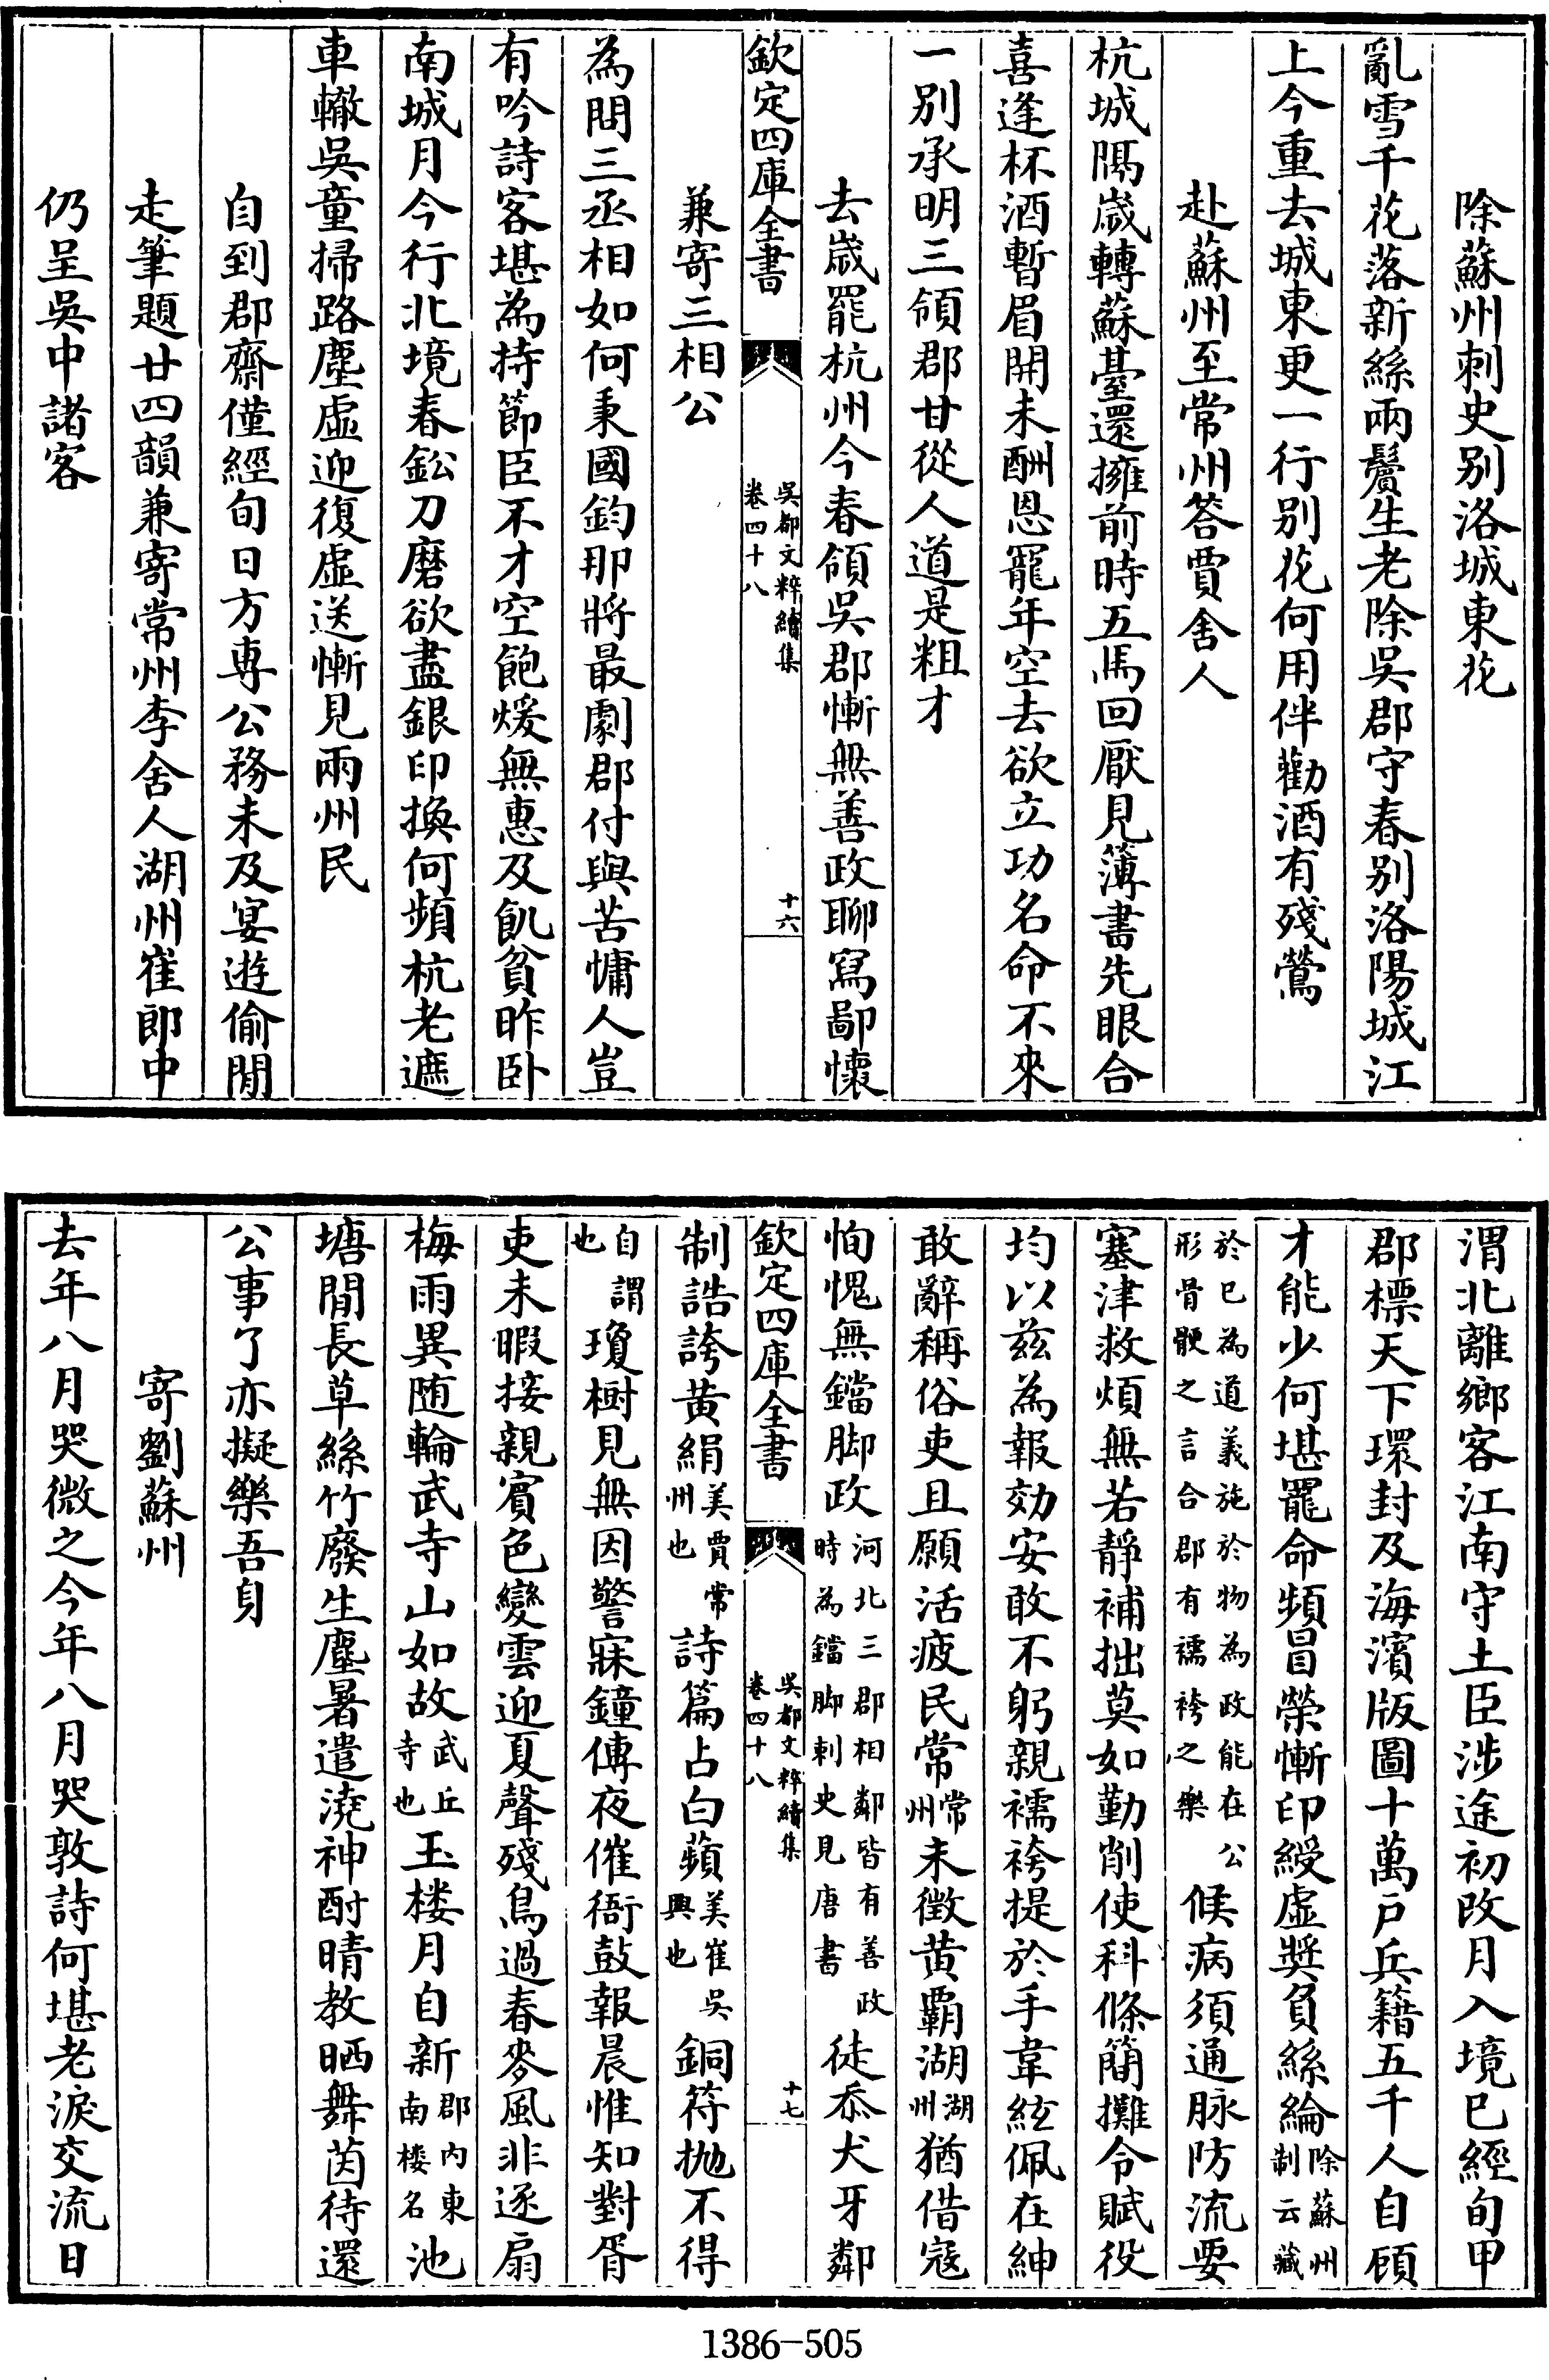 除蘇州刺史别洛城東花
亂雪千花落新絲兩鬢生老除吳郡守春别洛陽城江
上今重去城東更一行别花何用伴勸酒有殘鶯
赴蘇州至常州答賈舍人
杭城隅歲轉蘇臺還擁前時五馬回厭見簿書先眼合
喜逢杯酒暫眉開未酬恩寵年空去欲立功名命不來
一别承明三領郡甘從人道是粗才
去歲罷杭州今春領吳郡慚無善政聊寫鄙懷
欽定四庫全書
吳都文粹續集
卷四十八
十六
兼寄三相公
為問三丞相如何秉國鈞那將最劇郡付與苦慵人豈
有吟詩客堪為持節臣不才空飽煖無惠及飢貧昨卧
南城月今行北境春鈆刀磨欲盡銀印換何頻杭老遮
車轍吳童掃路塵虛迎復虛送慚見兩州民
自到郡齋僅經旬日方專公務未及宴遊偷閒
走筆題廿四韻兼寄常州李舍人湖州崔郎中
仍呈吳中諸客
渭北離鄉客江南守土臣涉途初改月入境已經旬甲
郡標天下環封及海濱版圖十萬戶兵籍五千人自顧
才能少何堪罷命頻冒榮慚印綬虛奬負絲綸除蘇州制云藏
於已為道義施於物為政能在公形骨骾之言合郡有襦袴之樂候病須通脉防流要
塞津救煩無若靜補拙莫如勤削使科條簡攤令賦役
均以兹為報効安敢不躬親襦袴提於手韋絃佩在紳
敢辭稱俗吏且願活疲民常常州未徵黄霸湖湖州猶借寇
恂愧無鐺脚政河北三郡相鄰皆有善政時為鐺脚刺史見唐書徒忝犬牙鄰
欽定四庫全書
吳都文粹續集
卷四十八
十七
制誥誇黄絹美賈常州也詩篇占白蘋美崔吳興也銅符抛不得
自謂也瓊樹見無因警寐鐘傳夜催衙鼓報晨惟知對胥
吏未暇接親賓色變雲迎夏聲殘鳥過春麥風非逐扇
梅雨異随輪武寺山如故武丘寺也玉楼月自新郡内東南楼名池
塘閒長草絲竹廢生塵暑遣澆神酎晴教晒舞茵待還
公事了亦擬樂吾身
寄劉蘇州
去年八月哭微之今年八月哭敦詩何堪老淚交流日
1386-505